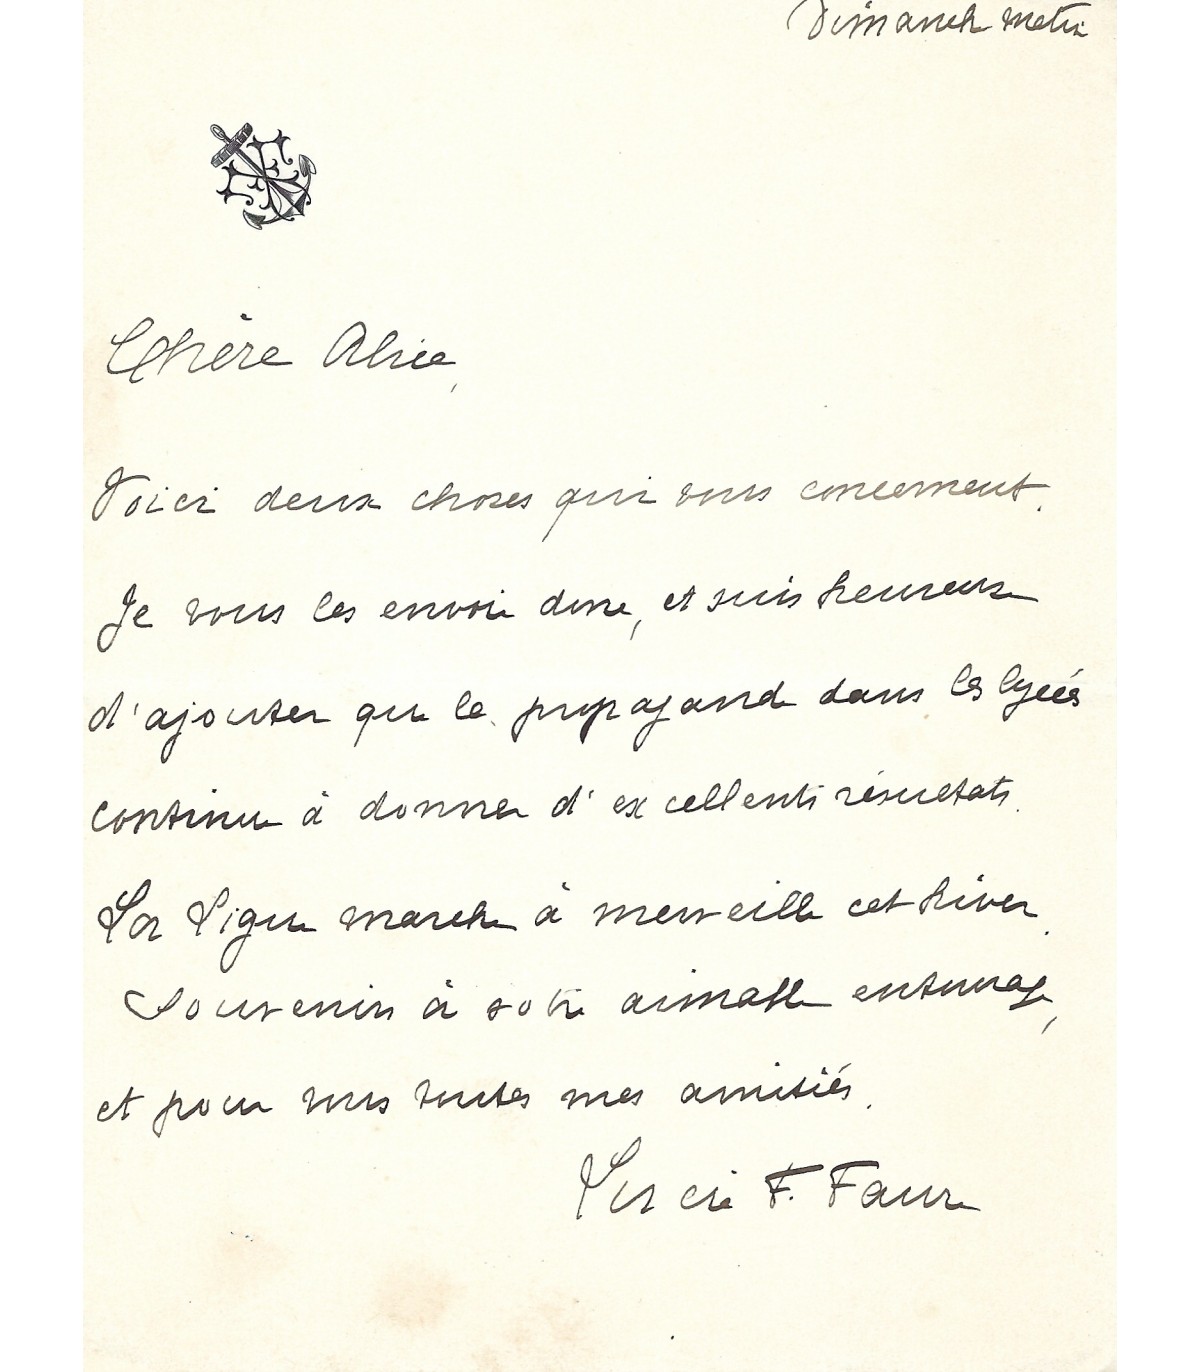 Dimanche matin
Chère Alice,
Voici deux choses qui vous concernent.
Je vous les envoie donc, et suis heureuse
d'ajouter que la propagande dans les lycées
continue à donner d'excellents résultats.
La Ligue marche à merveille cet hiver.
Souvenirs à votre aimable entourage,
et pour vous toutes mes amitiés.
Lucie F. Faure